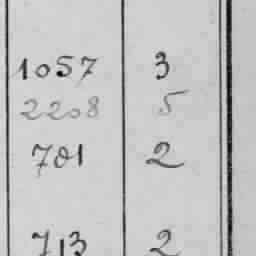 1057 3
2208 5
701 2
713 2